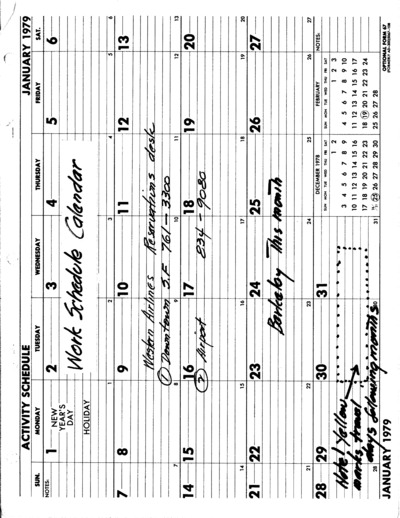 ACTIVITY SCHEDULE JANUARY 1979
SUN. MONDAY TUESDAY WEDNESDAY THURSDAY FRIDAY SAT.
NOTES: 1 2 3 4 5 6
NEW
YEAR'S
DAY
HOLIDAY
Work Schedule Calendar
1 2 3 4 5 6
7 8 9 10 11 12 13
Western Airlines Reservations desk
① Downtown S.F 761-3300
7 8 9 10 11 12 13
14 15 16 17 18 19 20
② Airport 834-9080
14 15 16 17 18 19 20
21 22 23 24 25 26 27
Berkeley This month
21 22 23 24 25 26 27
28 29 30 31
Note! Yellow
marks travel
days following months
28 30 31
DECEMBER 1978
SUN MON TUE WED THU FRI SAT
1 2
3 4 5 6 7 8 9
10 11 12 13 14 15 16
17 18 19 20 21 22 23
25 26 27 28 29 30
FEBRUARY
SUN MON TUE WED THU FRI SAT
1 2 3
4 5 6 7 8 9 10
11 12 13 14 15 16 17
18 19 20 21 22 23 24
25 26 27 28
NOTES:
JANUARY 1979
OPTIONAL FORM 67